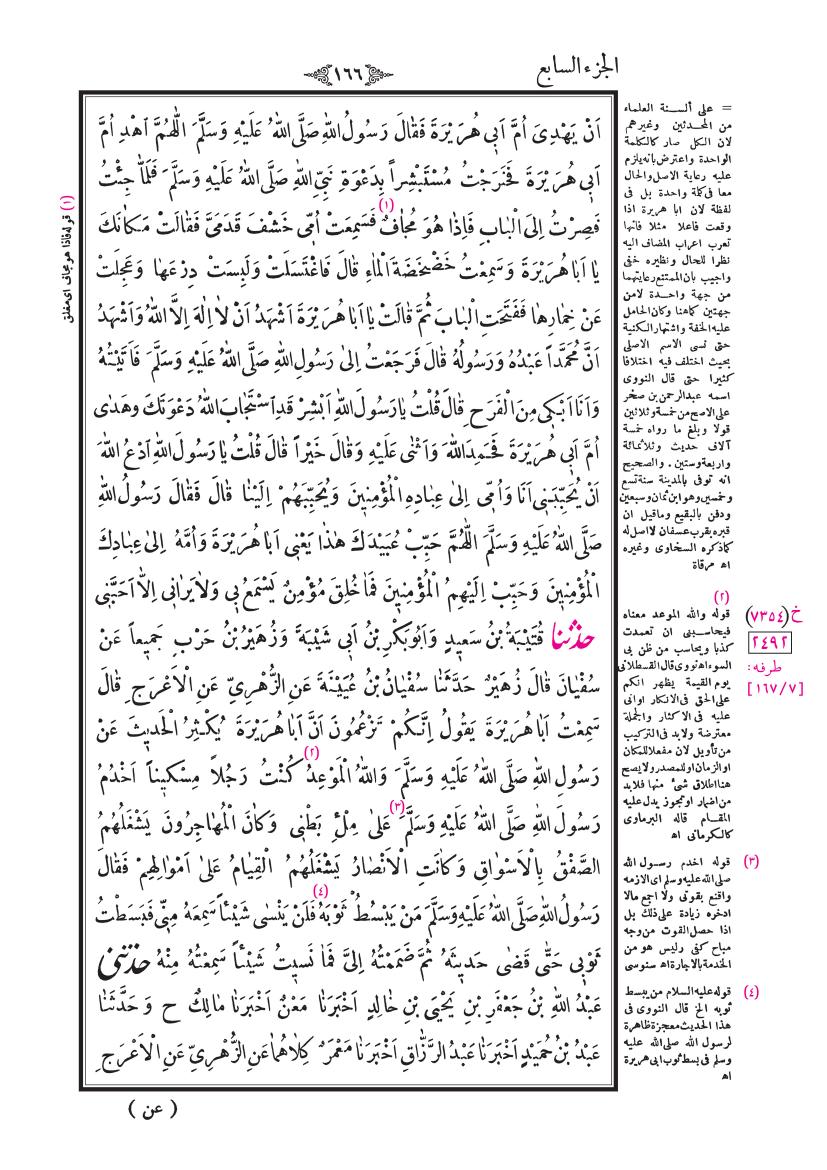 الجزء السابع
١٦٦
اَنْ يَهْدِىَ اُمَّ اَبى هُرَيْرَةَ فَقالَ رَسُولُ اللهِ صَلَّى اللهُ عَلَيْهِ وَسَلَّمَ اَللّٰهُمَّ اهْدِ اُمَّ
اَبى هُرَيْرَةَ فَخَرَجْتُ مُسْتَبْشِراً بِدَعْوَةِ نَبِيِّ اللهِ صَلَّى اللهُ عَلَيْهِ وَسَلَّمَ فَلَمَّا جِئْتُ
فَصِرْتُ اِلَى الْبابِ فَاِذا هُوَ مُجافٌ (١) فَسَمِعَتْ اُمّى خَشْفَ قَدَمَىَّ فَقالَتْ مَكانَكَ
يا اَبا هُرَيْرَةَ وَسَمِعْتُ خَضْخَضَةَ الْماءِ قالَ فَاغْتَسَلَتْ وَلَبِسَتْ دِرْعَها وَعَجِلَتْ
عَنْ خِمارِها فَفَتَحَتِ الْبابَ ثُمَّ قالَتْ يا اَبا هُرَيْرَةَ اَشْهَدُ اَنْ لا اِلٰهَ اِلَّا اللهُ وَاَشْهَدُ
اَنَّ مُحَمَّداً عَبْدُهُ وَرَسُولُهُ قالَ فَرَجَعْتُ اِلى رَسُولِ اللهِ صَلَّى اللهُ عَلَيْهِ وَسَلَّمَ فَاَتَيْتُهُ
وَاَنَا اَبْكى مِنَ الْفَرَحِ قالَ قُلْتُ يا رَسُولَ اللهِ اَبْشِرْ قَدِ اسْتَجابَ اللهُ دَعْوَتَكَ وَهَدى
اُمَّ اَبى هُرَيْرَةَ فَحَمِدَ اللهَ وَاَثْنى عَلَيْهِ وَقالَ خَيْراً قالَ قُلْتُ يا رَسُولَ اللهِ اُدْعُ اللهَ
اَنْ يُحَبِّبَنى اَنَا وَاُمّى اِلى عِبادِهِ الْمُؤْمِنينَ وَيُحَبِّبَهُمْ اِلَيْنا قالَ فَقالَ رَسُولُ اللهِ
صَلَّى اللهُ عَلَيْهِ وَسَلَّمَ اَللّٰهُمَّ حَبِّبْ عُبَيْدَكَ هٰذا يَعْنى اَبا هُرَيْرَةَ وَاُمَّهُ اِلى عِبادِكَ
الْمُؤْمِنينَ وَحَبِّبْ اِلَيْهِمُ الْمُؤْمِنينَ فَما خُلِقَ مُؤْمِنٌ يَسْمَعُ بى وَلا يَرانى اِلَّا اَحَبَّنى
حدثنا قُتَيْبَةُ بْنُ سَعيدٍ وَاَبُوبَكْرِ بْنُ اَبى شَيْبَةَ وَزُهَيْرُ بْنُ حَرْبٍ جَميعاً عَنْ
سُفْيانَ قالَ زُهَيْرٌ حَدَّثَنا سُفْيانُ بْنُ عُيَيْنَةَ عَنِ الزُّهْرِيِّ عَنِ الْاَعْرَجِ قالَ
سَمِعْتُ اَبا هُرَيْرَةَ يَقُولُ اِنَّكُمْ تَزْعُمُونَ اَنَّ اَبا هُرَيْرَةَ يُكْثِرُ الْحَديثَ عَنْ
رَسُولِ اللهِ صَلَّى اللهُ عَلَيْهِ وَسَلَّمَ وَاللهُ الْمَوْعِدُ (٢) كُنْتُ رَجُلاً مِسْكيناً اَخْدُمُ
رَسُولَ اللهِ صَلَّى اللهُ عَلَيْهِ وَسَلَّمَ (٣) عَلى مِلْءِ بَطْنى وَكانَ الْمُهاجِرُونَ يَشْغَلُهُمُ
الصَّفْقُ بِالْاَسْواقِ وَكانَتِ الْاَنْصارُ يَشْغَلُهُمُ الْقِيامُ عَلى اَمْوالِهِمْ فَقالَ
رَسُولُ اللهِ صَلَّى اللهُ عَلَيْهِ وَسَلَّمَ مَنْ يَبْسُطُ (٤) ثَوْبَهُ فَلَنْ يَنْسى شَيْئاً سَمِعَهُ مِنّى فَبَسَطْتُ
ثَوْبى حَتّى قَضى حَديثَهُ ثُمَّ ضَمَمْتُهُ اِلَىَّ فَما نَسيتُ شَيْئاً سَمِعْتُهُ مِنْهُ حدثنى
عَبْدُ اللهِ بْنُ جَعْفَرِ بْنِ يَحْيَى بْنِ خالِدٍ اَخْبَرَنا مَعْنٌ اَخْبَرَنا مالِكٌ ح وَحَدَّثَنا
عَبْدُ بْنُ حُمَيْدٍ اَخْبَرَنا عَبْدُ الرَّزّاقِ اَخْبَرَنا مَعْمَرٌ كِلاهُما عَنِ الزُّهْرِيِّ عَنِ الْاَعْرَجِ
( عن )
= على ألسنة العلماء
من المحدثين وغيرهم
لان الكل صار كالكلمة
الواحدة واعترض بانه يلزم
عليه رعاية الاصل والحال
معا فى كلمة واحدة بل فى
لفظة لان ابا هريرة اذا
وقعت فاعلا مثلا فانها
تعرب اعراب المضاف اليه
نظرا للحال ونظيره خفى
واجيب بان الممتنع رعايتهما
من جهة واحدة لامن
جهتين كما هنا وكان الحامل
عليه الخفة واشتهار الكنية
حتى نسى الاسم الاصلى
بحيث اختلف فيه اختلافا
كثيرا حتى قال النووى
اسمه عبدالرحمن بن صخر
على الاصح من خمسة وثلاثين
قولا وبلغ ما رواه خمسة
آلاف حديث وثلاثمائة
واربعة وستين . والصحيح
انه توفى بالمدينة سنة تسع
وخمسين وهو ابن ثمان وسبعين
ودفن بالبقيع وماقيل ان
قبره بقرب عسفان لااصل له
كما ذكره السخاوى وغيره
اه مرقاة
(٢)
قوله والله الموعد معناه
فيحاسبنى ان تعمدت
كذبا ويحاسب من ظن بى
السوء اه نووى قال القسطلانى
يوم القيمة يظهر انكم
على الحق فى الانكار اوانى
عليه فى الاكثار والجملة
معترضة ولابد فى التركيب
من تأويل لان مفعلا للمكان
او الزمان او للمصدر ولا يصح
هنا اطلاق شئ منها فلابد
من اضمار او تجوز يدل عليه
المقام قاله البرماوى
كالكرمانى اه
خ (٧٣٥٤)
٢٤٩٢
طرفه :
[١٦٧/٧]
(٣) قوله اخدم رسول الله
صلى الله عليه وسلم اى الازمه
واقنع بقوتى ولا اجمع مالا
ادخره زيادة على ذلك بل
اذا حصل القوت من وجه
مباح كفى وليس هو من
الخدمة بالاجارة اه سنوسى
(٤) قوله عليه السلام من يبسط
ثوبه الخ قال النووى فى
هذا الحديث معجزة ظاهرة
لرسول الله صلى الله عليه
وسلم فى بسط ثوب ابى هريرة
اه
(١) قوله فاذا هو مجاف اى مغلق